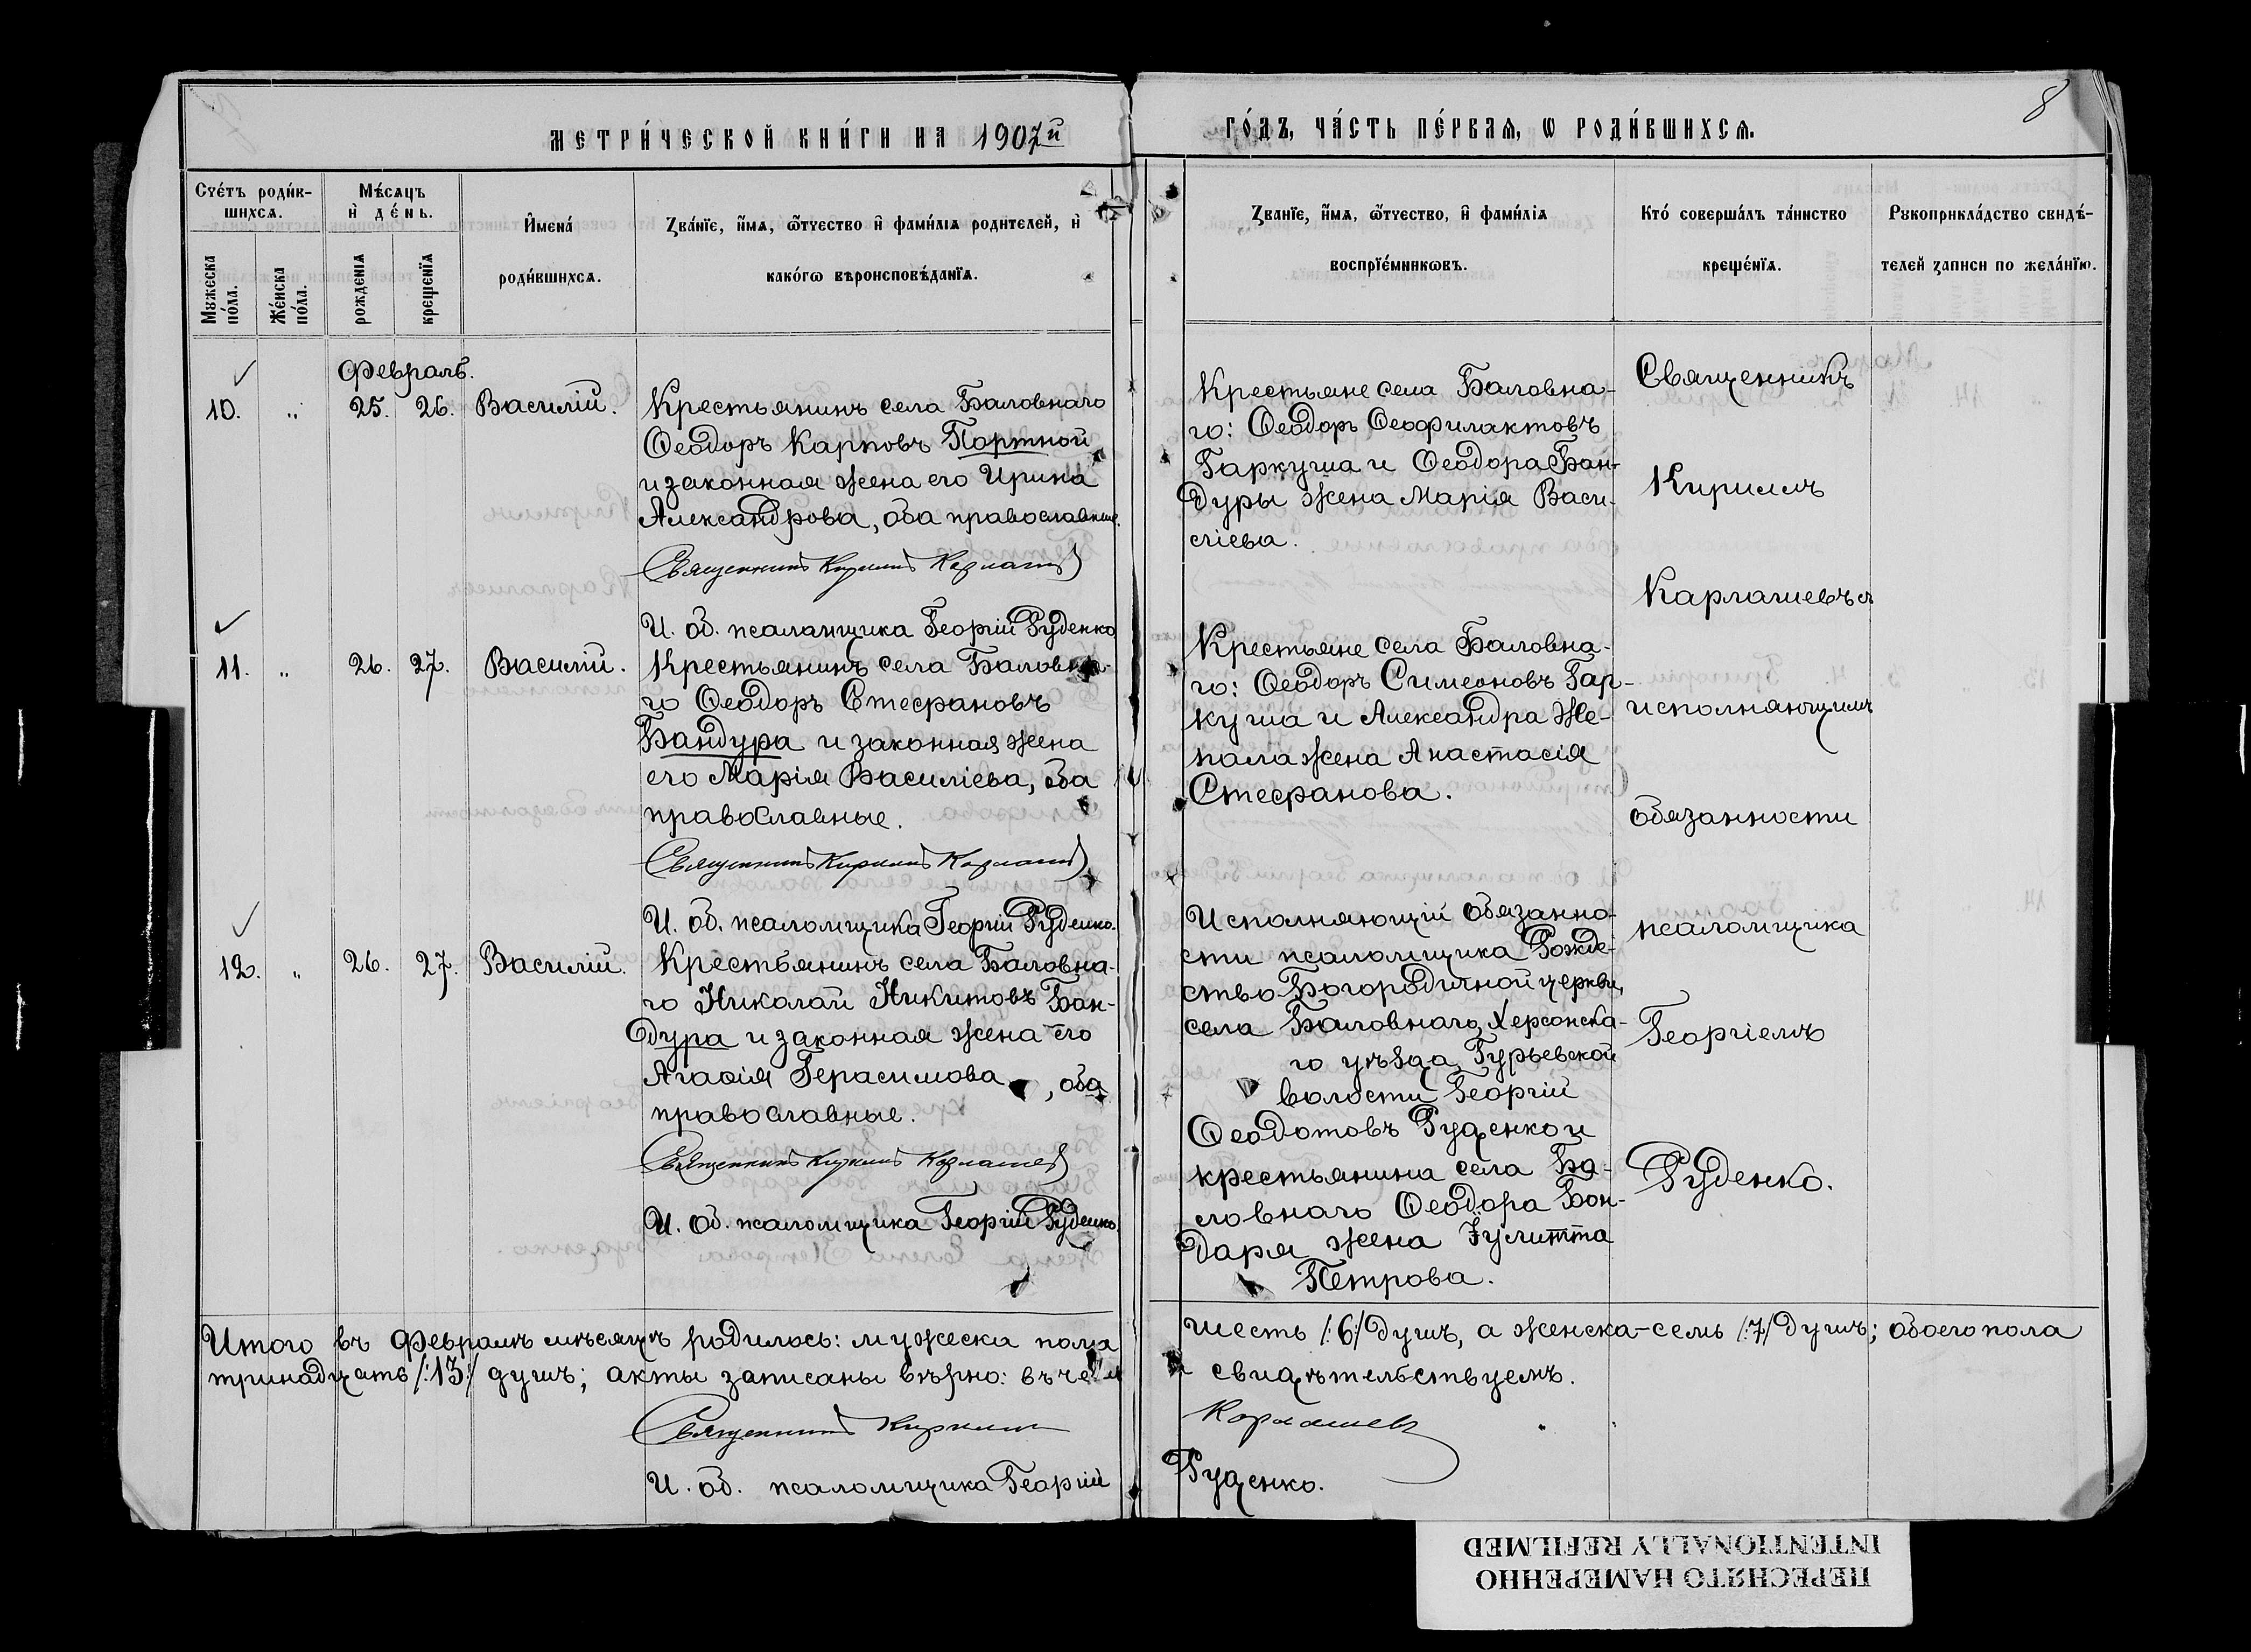 МЕТРИ́ЧЕСКОЙ КНИ́ГИ НА 1907й
ГО́ДЪ, ЧА́СТЬ ПЕ́РВАѦ, Ѡ РОДИ́ВШИХСѦ.
8
Счéтъ роди́в-
шихсѧ.
Мужеска
по́ла.
Же́нска
по́ла.
Мѣ́сѧцъ
и҆ де́нь.
рожденїѧ
крещенїѧ
И҆мена́
роди́вшихсѧ.
Зва́нїе, и҆́мѧ, ѻ҆́тчество и҆ фами́лїѧ родителей, и҆
како́гѡ вѣроисповѣ́данїѧ.
Зва́нїе, и҆́мѧ, ѻ҆́тчество, и҆ фами́лїѧ
воспрїе́мникѡвъ.
Кто́ соверша́лъ та́инство
креще́нїѧ.
Рꙋкоприкла́дство свидѣ́-
телей записи по жела́нїю.
Февраль.
10. „ 25. 26. Василій.
Крестьянинъ села Баловнаго
Ѳеодоръ Карповъ Портной
и законная жена его Ирина
Александрова, оба православные.
Священникъ Кириллъ Карлашев
И. об. псаломщика Георгій Руденко
Крестьяне села Баловна-
го: Ѳеодоръ Ѳеофилактовъ
Гаркуша и Ѳеодора Бан-
дуры жена Марія Васи-
ліева.
11. „ 26. 27. Василій.
Крестьянинъ села Баловна-
го Ѳеодоръ Стефановъ
Бандура и законная жена
его Марія Василіева, оба
православные.
Священникъ Кириллъ Карлашев
И. об. псаломщика Георгій Руденко.
Крестьяне села Баловна-
го: Ѳеодоръ Симеоновъ Гар-
куша и Александра Же-
пала жена Анастасія
Стефанова.
12. „ 26. 27. Василій.
Крестьянинъ села Баловна-
го Николай Никитовъ Бан-
дура и законная жена его
Агаѳія Герасимова, оба
православные.
Священникъ Кириллъ Карлашев
И. об. псаломщика Георгій Руденко.
Исполняющій обязанно-
сти псаломщика Рожде-
ство-Богородичной церкви,
села Баловнаго, Херсонска-
го уѣзда, Гурьевской
волости Георгій
Ѳеодотовъ Руденко и
крестьянина села Ба-
ловнаго Ѳеодора Бон-
даря жена Іулитта
Петрова.
Священникъ
Кириллъ
Карлашевъ съ
исполняющимъ
обязанности
псаломщика
Георгіемъ
Руденко.
Итого въ Февралѣ мѣсяцѣ родилось: мужеска пола
шесть /:6:/ душъ, а женска-семь /:7:/ душъ; обоего пола
тринадцать /:13:/ душъ; акты записаны вѣрно: въ чемъ
и свидѣтельствуемъ.
Священникъ Кириллъ
Карлашев
И. об. псаломщика Георгій
Руденко.
ПЕРЕСНЯТО НАМЕРЕННО
INTENTIONALLY REFILMED